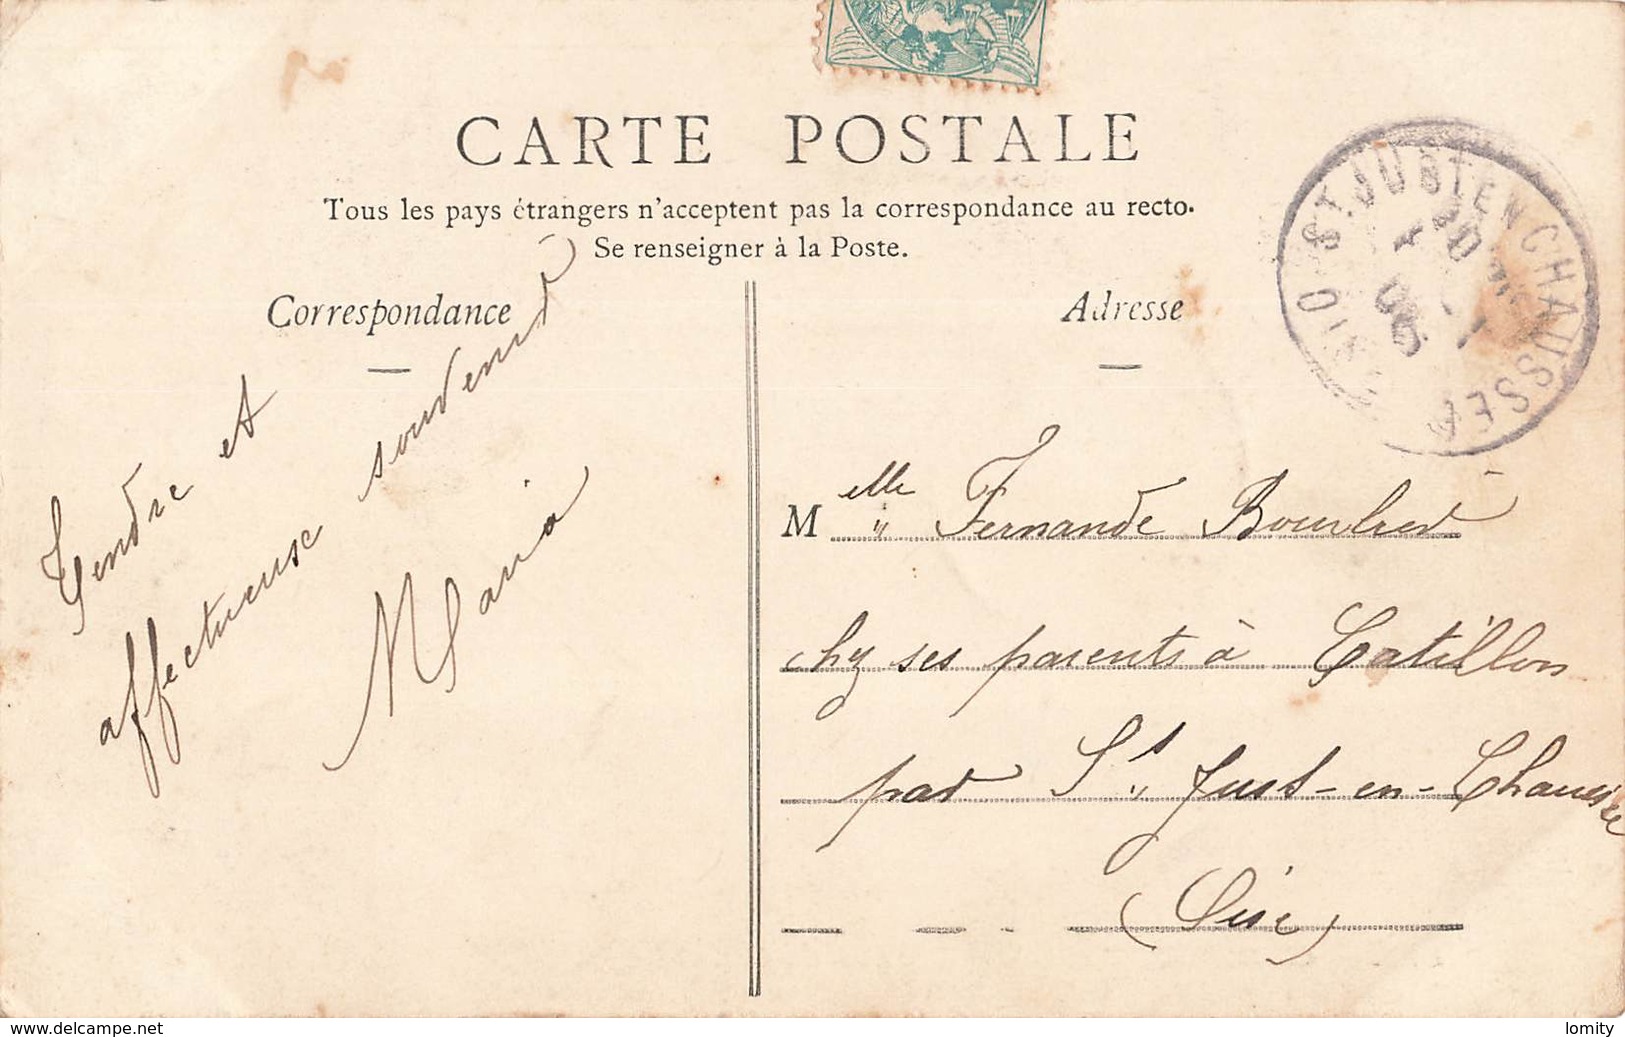 CARTE POSTALE
Tous les pays étrangers n'acceptent pas la correspondance au recto.
Se renseigner à la Poste.
Correspondance
Adresse
ST JUST EN CHAUSSEE
Tendre et
affectueuse souvenir
Maria
Melle Fernande
chez ses parents à Catillon
par St Just-en-Chaussée
(Oise)
www.delcampe.net
lomity